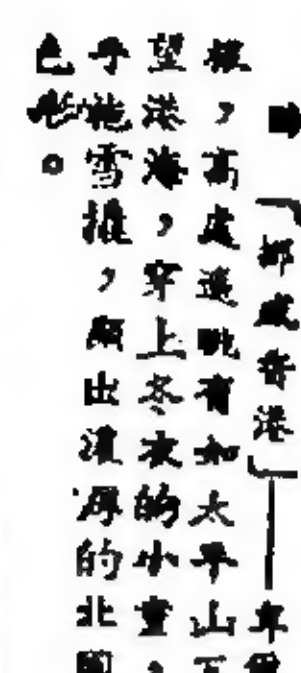 ➡「挪威香港」——卑爾
根,高處遠眺有如太平山下
望港海,穿上冬衣的小童,
手拖雪橇,顯出濃厚的北國
色彩。